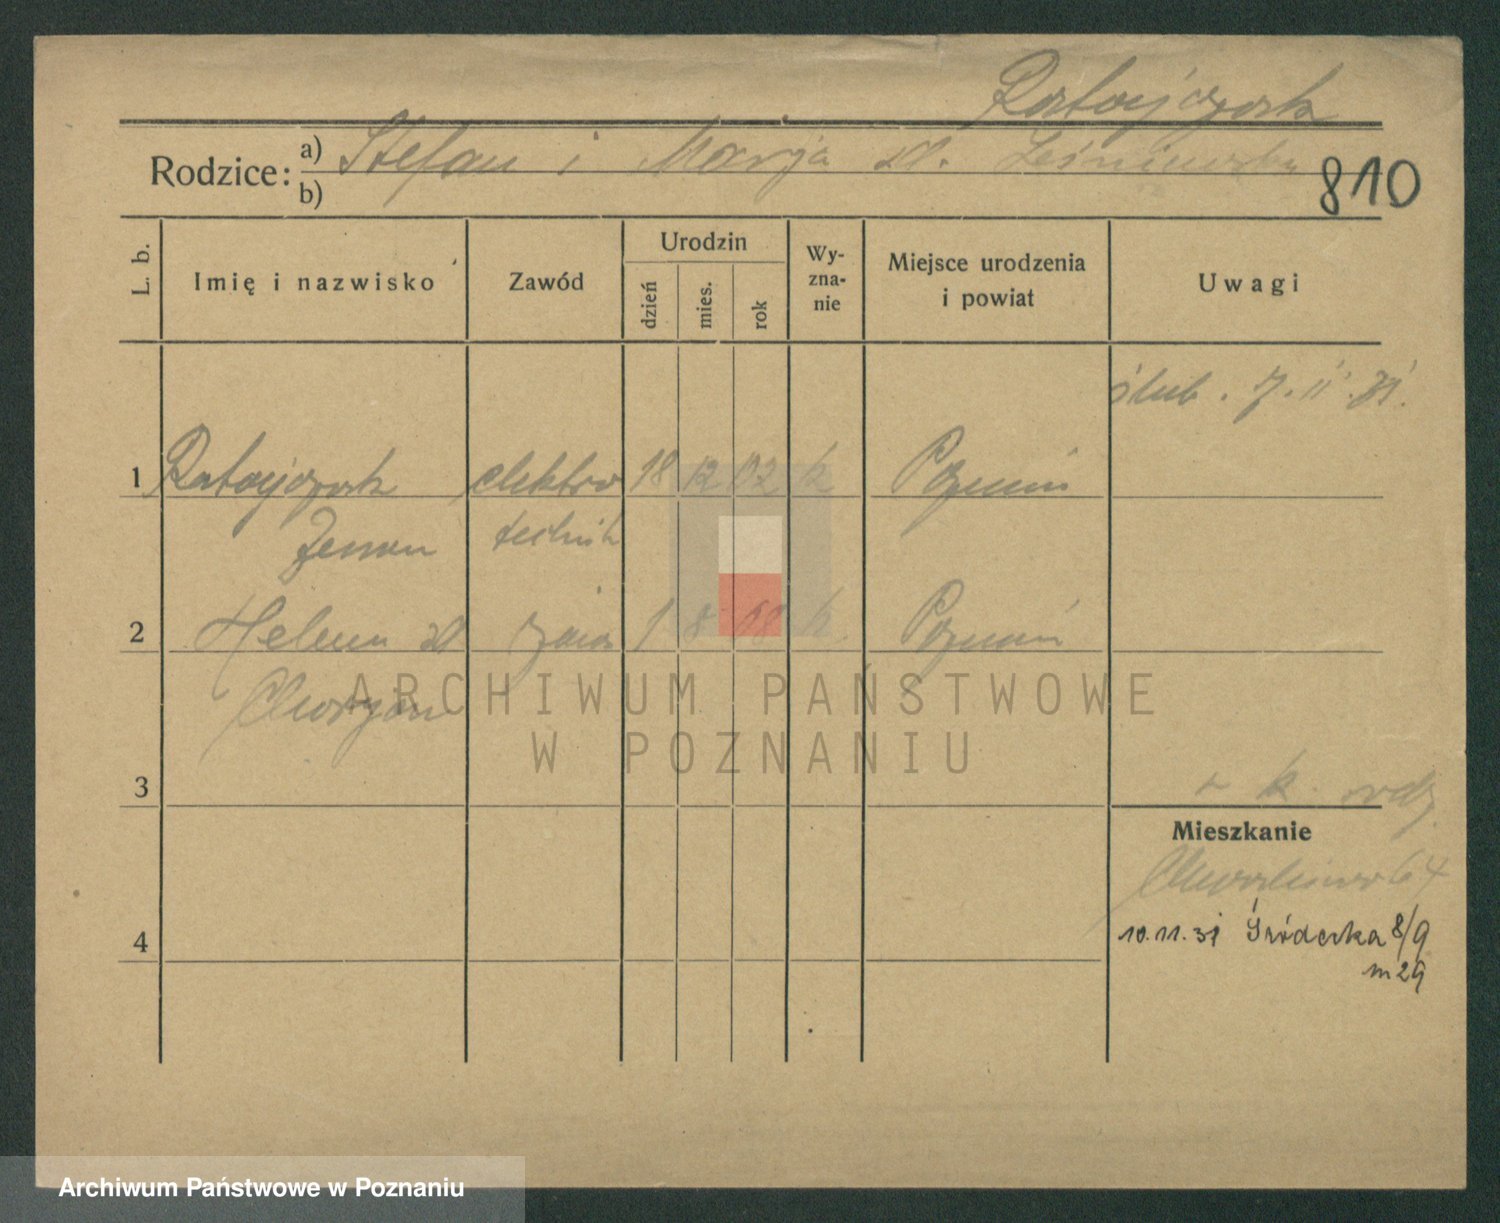 Ratajczak
Rodzice: a) Stefan i Marja zd. Leśniewska
b)
810
L. b.
Imię i nazwisko
Zawód
Urodzin
dzień
mies.
rok
Wy-
zna-
nie
Miejsce urodzenia
i powiat
Uwagi
ślub. 7. 11. 31.
1 Ratajczak elektro 18 12 02 k Poznań
Zenon technik
2 Helena zd 1 8 08 k Poznań
3
k. rodz.
Mieszkanie
4
10.11.31 Śródecka 8/9
m 29
ARCHIWUM PAŃSTWOWE
W POZNANIU
Archiwum Państwowe w Poznaniu